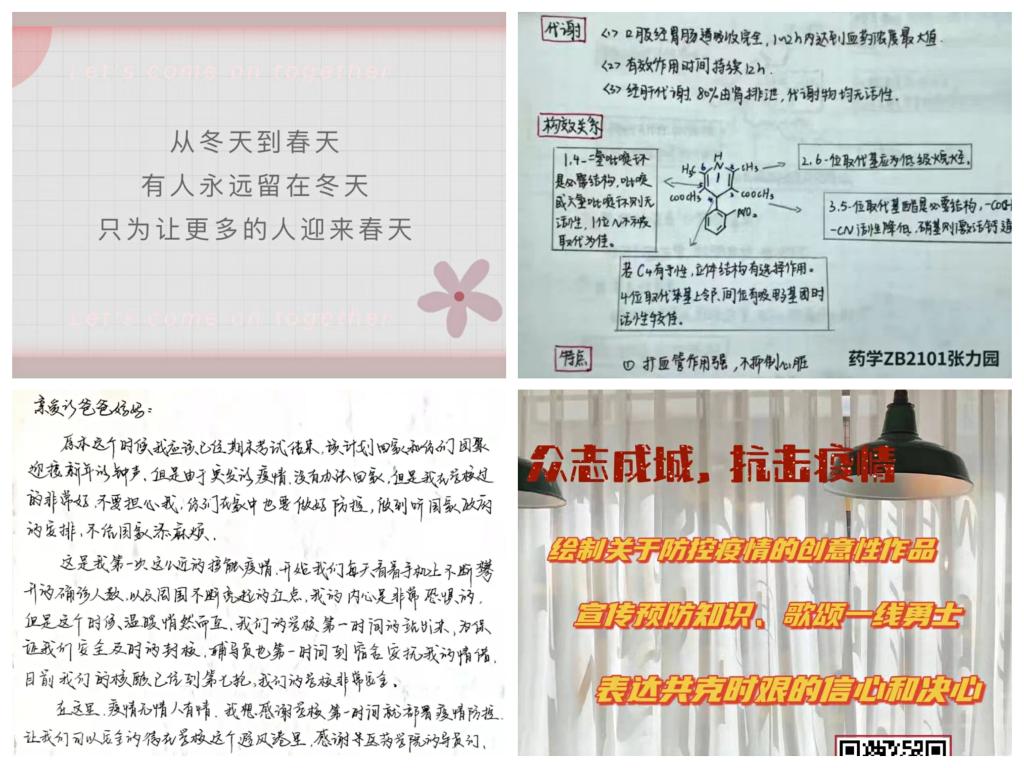 Let's come on together
从冬天到春天
有人永远留在冬天
只为让更多的人迎来春天
Let's come on together
代谢
<1> 口服经胃肠道吸收完全,1~2h内达到血药浓度最大值.
<2> 有效作用时间持续12h.
<3> 经肝代谢,80%由肾排泄,代谢物均无活性.
构效关系
1.4-二氢吡啶环
是必要结构,吡啶
或六氢吡啶环则无
活性,1位N不被
取代为佳.
H
H₃C
N
CH₃
COOCH₃
COOCH₃
NO₂
2.6-位取代基应为低级烷烃.
3.5-位取代基酯是必要结构,-COCH
-CN活性降低,硝基则激活钙通
若C4有手性,立体结构有选择作用。
4位取代苯基上邻、间位有吸电子基团时
活性较佳.
特点
① 扩血管作用强,不抑制心脏
药学ZB2101张力园
亲爱的爸爸妈妈:
原本这个时候我应该已经期末考试结束,该计划回家和你们团聚
迎接新年的钟声,但是由于突发的疫情,没有办法回家,但是我在学校过
的非常好,不要担心我,你们在家中也要做好防控,做到听国家政府
的安排,不给国家添麻烦.
这是我第一次这么近的接触疫情,开始我们每天看着手机上不断攀
升的确诊人数,以及周围不断亮起的红点,我的内心是非常恐惧的,
但是这个时候,温暖悄然而至,我们的学校第一时间的站出来,为保
证我们安全及时的封校,辅导员也第一时间到宿舍安抚我的情绪,
目前我们的核酸已经到第七轮,我们的学校非常安全.
在这里,疫情无情人有情,我想感谢学校第一时间就部署疫情防控,
让我们可以安全的待在学校这个避风港里,感谢医药学院的导员们,
众志成城,抗击疫情
绘制关于防控疫情的创意性作品
宣传预防知识、歌颂一线勇士
表达共克时艰的信心和决心